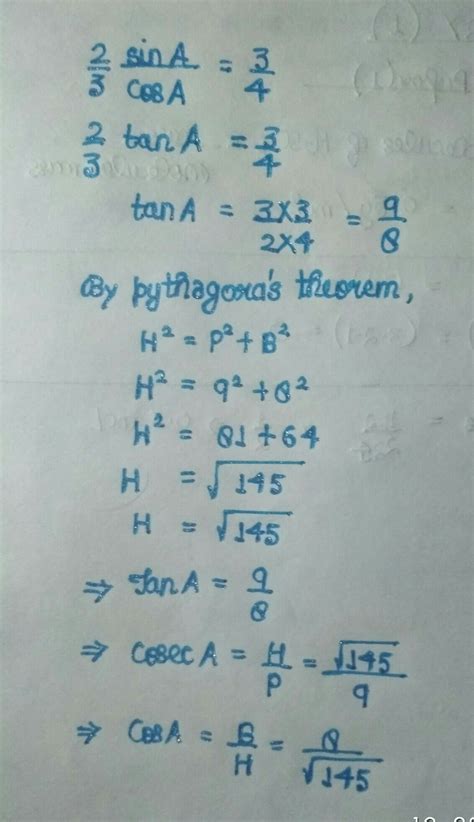 2/3 sinA/cosA = 3/4
2/3 tanA = 3/4
tanA = 3×3/2×4 = 9/8
By pythagora's theorem,
H² = P² + B²
H² = 9² + 8²
H² = 81 + 64
H = √145
H = √145
⇒ tanA = 9/8
⇒ cosecA = H/P = √145/9
⇒ cosA = B/H = 8/√145